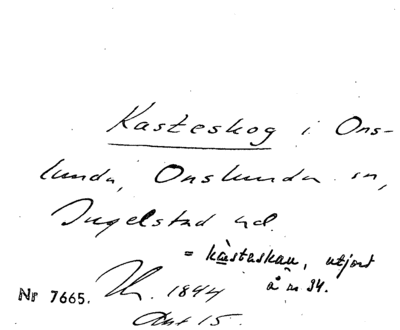 Kasteskog i Ons-
lunda, Onslunda sn,
Ingelstad hd.
= kàstaskau, utjord
å nr 34.
Nr 7665. Th. 1894
Akt 15.